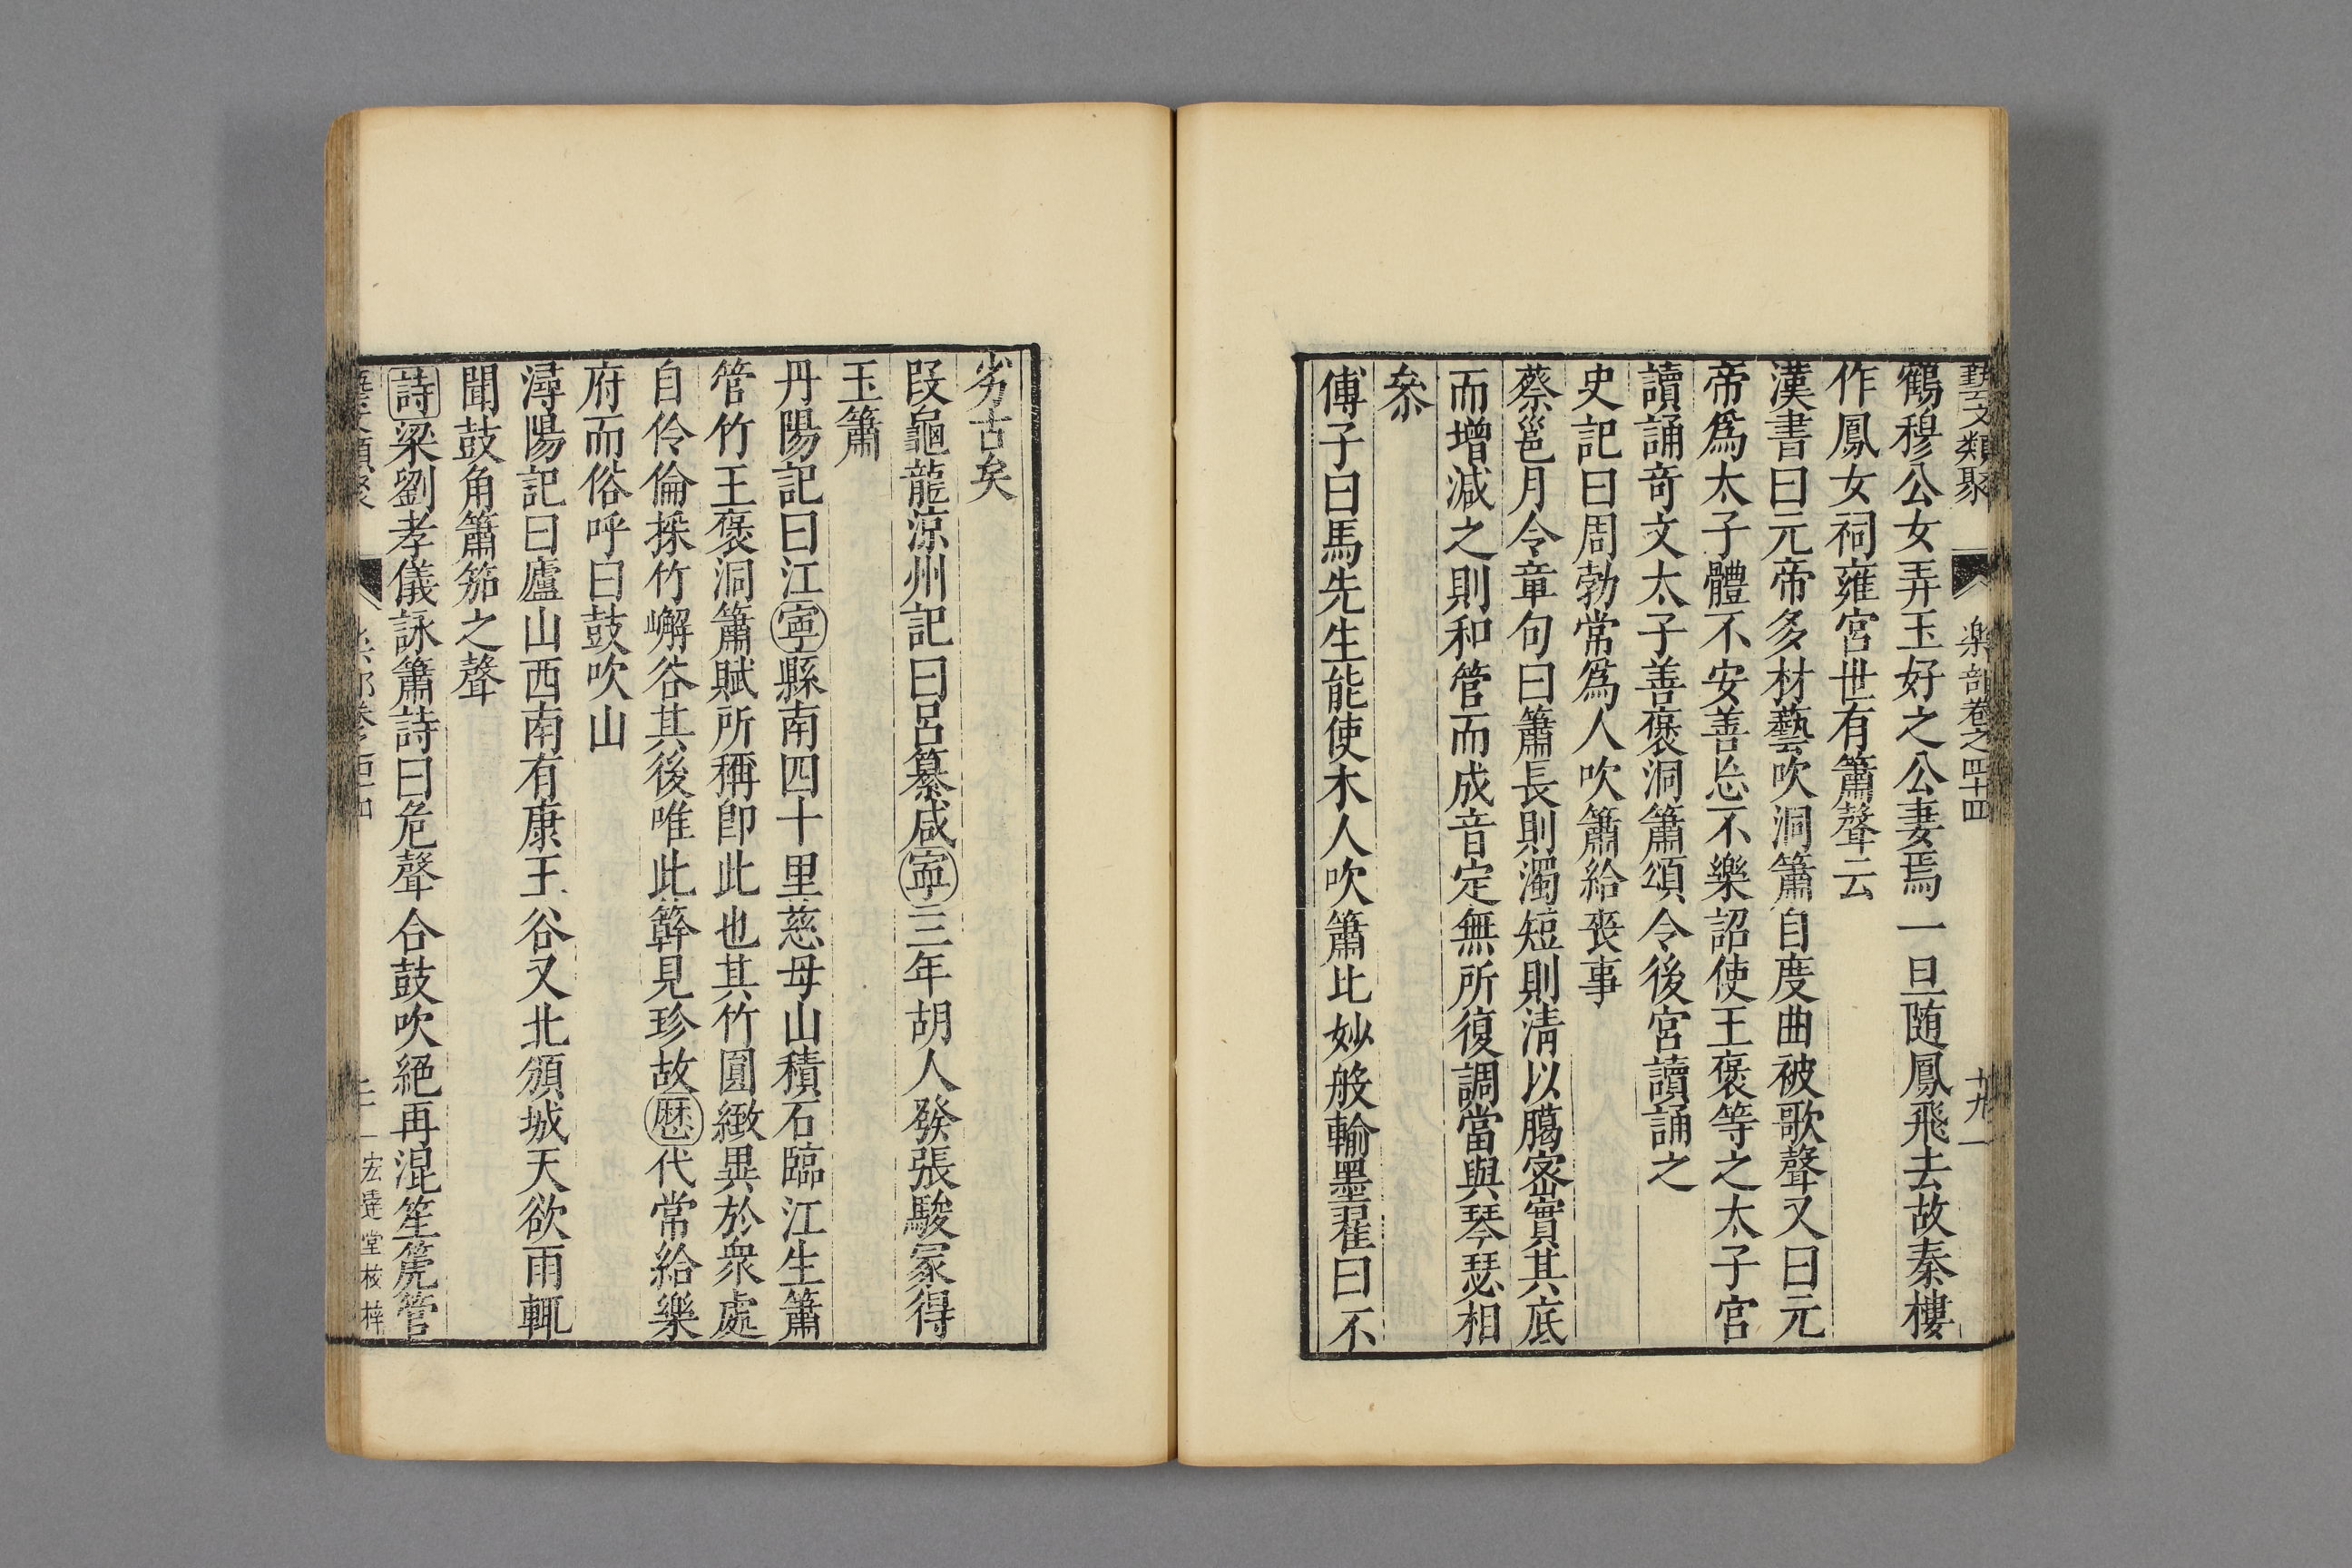 藝文類聚 樂部卷之四十四 十九
鶴穆公女弄玉好之公妻焉一旦随鳳飛去故秦樓
作鳳女祠雍宮世有簫聲云
漢書曰元帝多材藝吹洞簫自度曲被歌聲又曰元
帝爲太子體不安善忘不樂詔使王褒等之太子宮
讀誦竒文太子善褒洞簫頌令後宮讀誦之
史記曰周勃常爲人吹簫給喪事
蔡邕月令章句曰簫長則濁短則淸以蠟宻實其底
而增減之則和管而成音定無所復調當與琴瑟相
叅
傅子曰馬先生能使木人吹簫比妙般輸墨翟曰不
劣古矣
叚龜龍凉州記曰呂纂咸寧三年胡人發張駿冢得
玉簫
丹陽記曰江寧縣南四十里慈母山積石臨江生簫
管竹王褒洞簫賦所稱卽此也其竹圓緻異於衆處
自伶倫採竹嶰谷其後唯此簳見珍故歷代常給樂
府而俗呼曰鼓吹山
潯陽記曰廬山西南有康王谷又北嶺城天欲雨輒
聞鼓角簫笳之聲
詩梁劉孝儀詠簫詩曰危聲合鼓吹絕再混笙篪管
宏達堂校梓